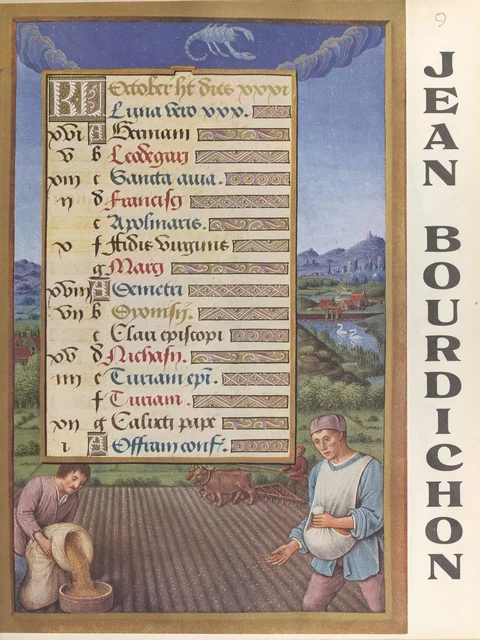 9
JEAN BOURDICHON
KL October ht dies xxxi
Luna vero xxx.
xvi A Germani
v b Leodegarj
xiii c Sancta auia.
ii d Franciscj
e Apolinaris.
v f Fidis virginis
g Marcj
xviii A Demetri
vii b Dyonisij.
c Clari episcopi
xv d Nichasij.
iiii e Turiani epi.
f Turiani.
xii g Calixti pape
i A Offrani conf.